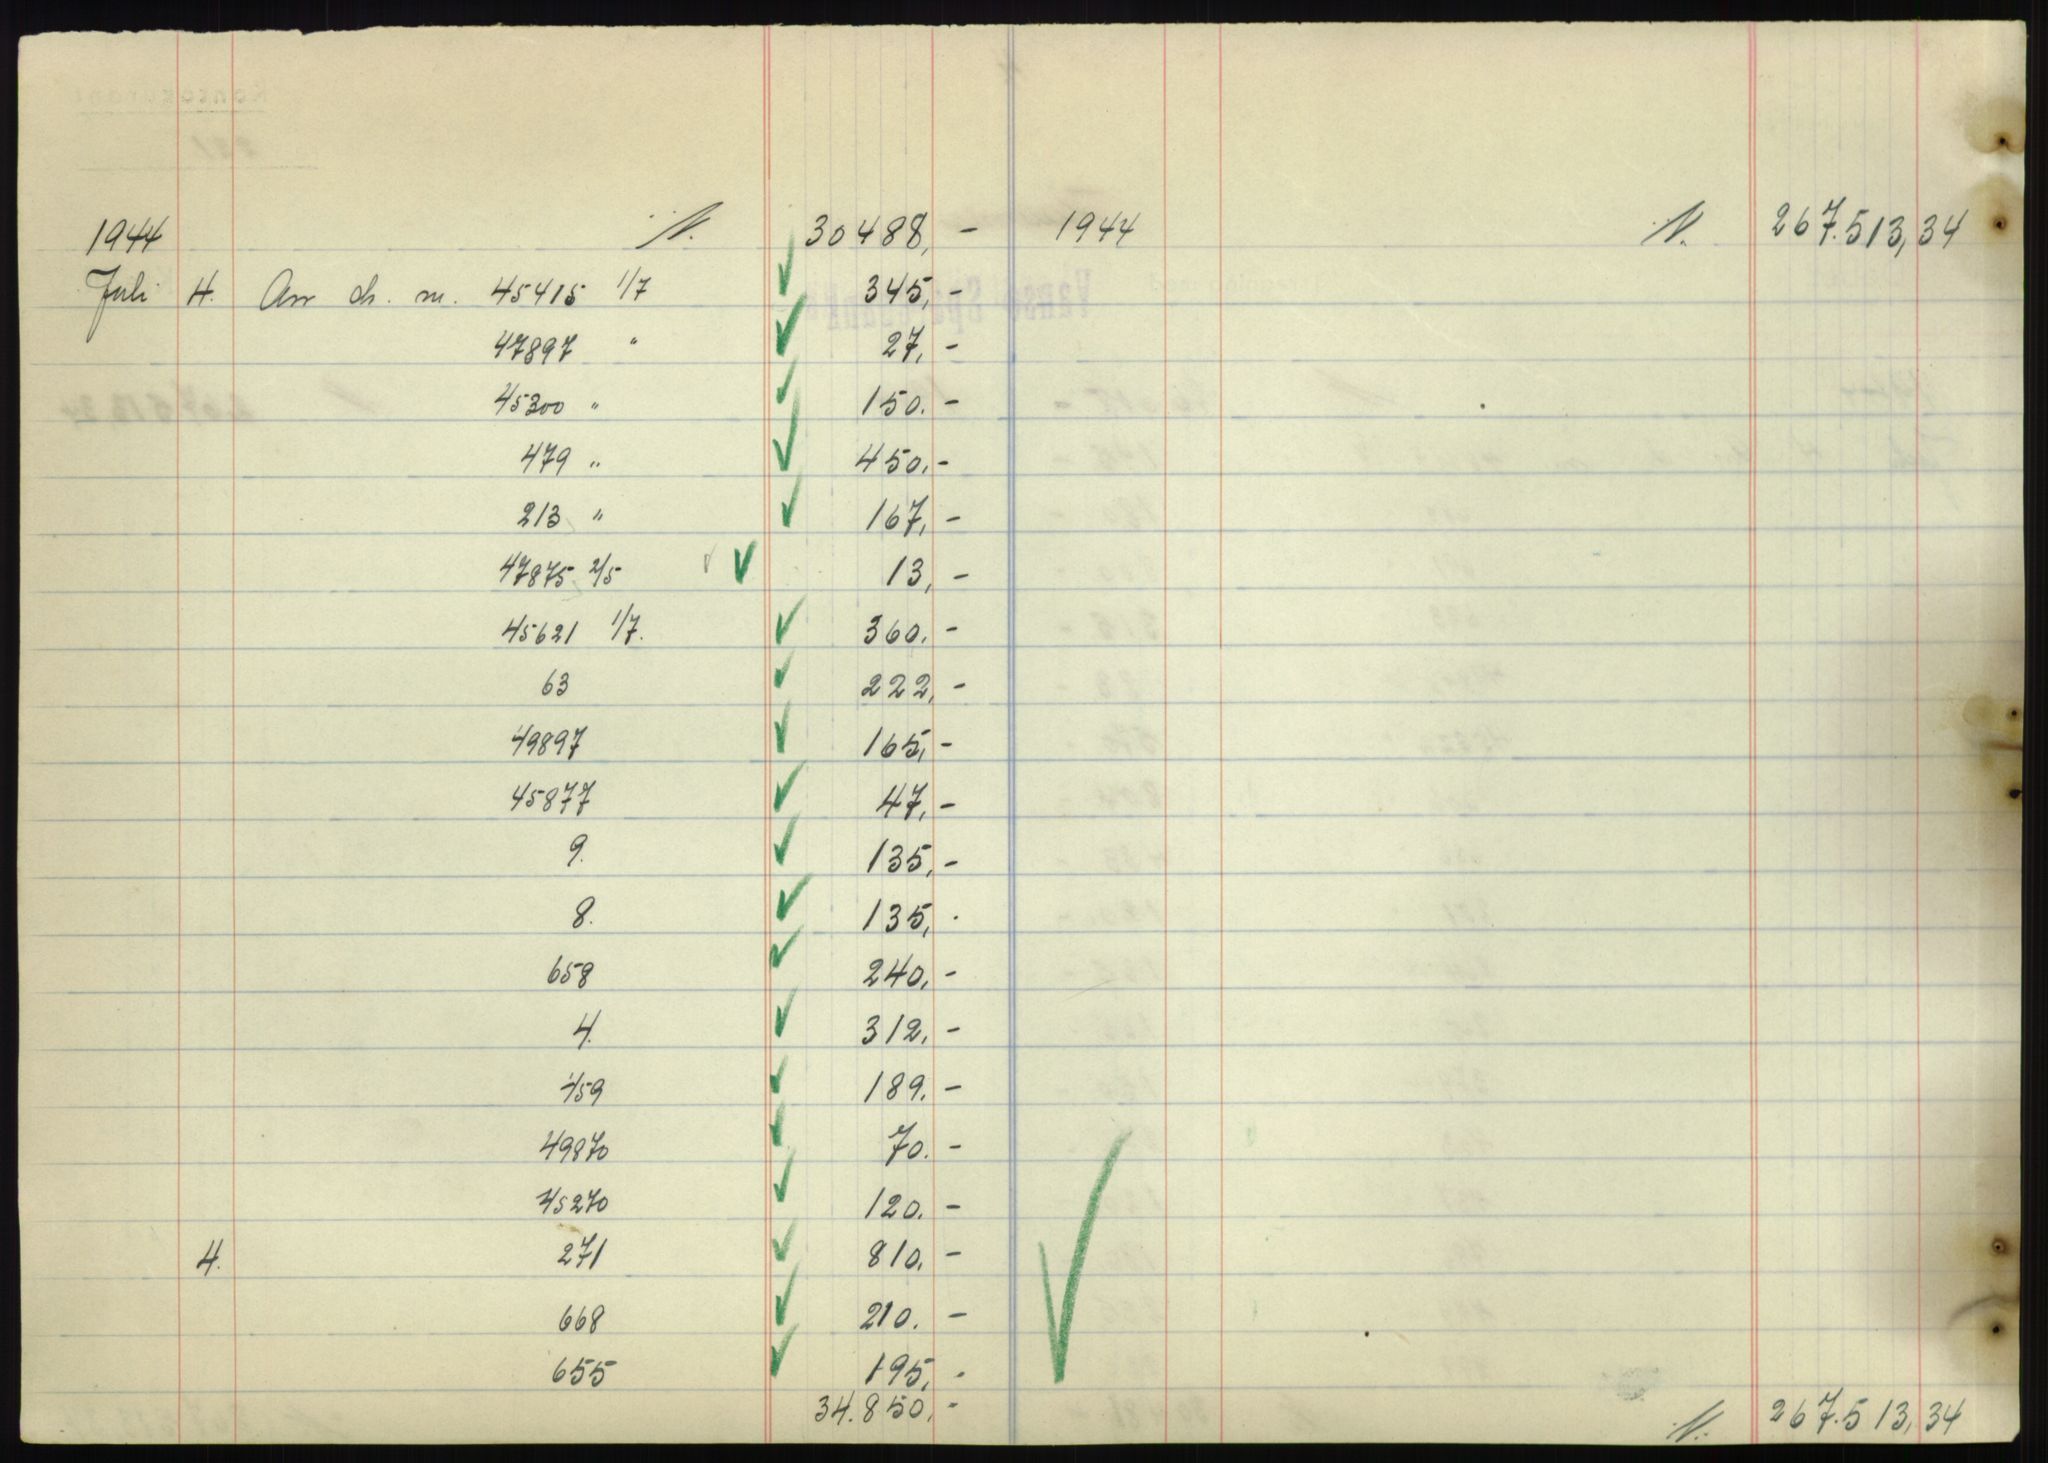 1944 N. 30488,- 1944 N. 267.513,34
Juli 4. An ch. m. 45415 1/7 345,-
47897 " 27,-
45300 " 150.-
479 " 450,-
213 " 167,-
47875 2/5 13,-
45621 1/7. 360.-
63 222,-
49897 165,-
45877 47,-
9. 135,-
8. 135,-
658 240,-
4. 312,-
459 189.-
49870 70.-
45270 120.-
4. 271 810.-
668 210.-
655 195,-
34.850,- N. 267.513,34